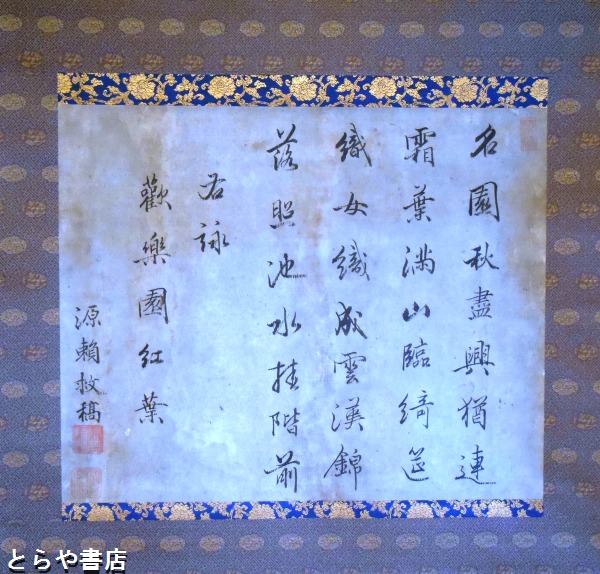 名園秋盡興猶連
霜葉滿山臨綺筵
織女織成雲漢錦
落照池水挂階前
右詠
歡樂園紅葉
源賴救稿
とらや書店